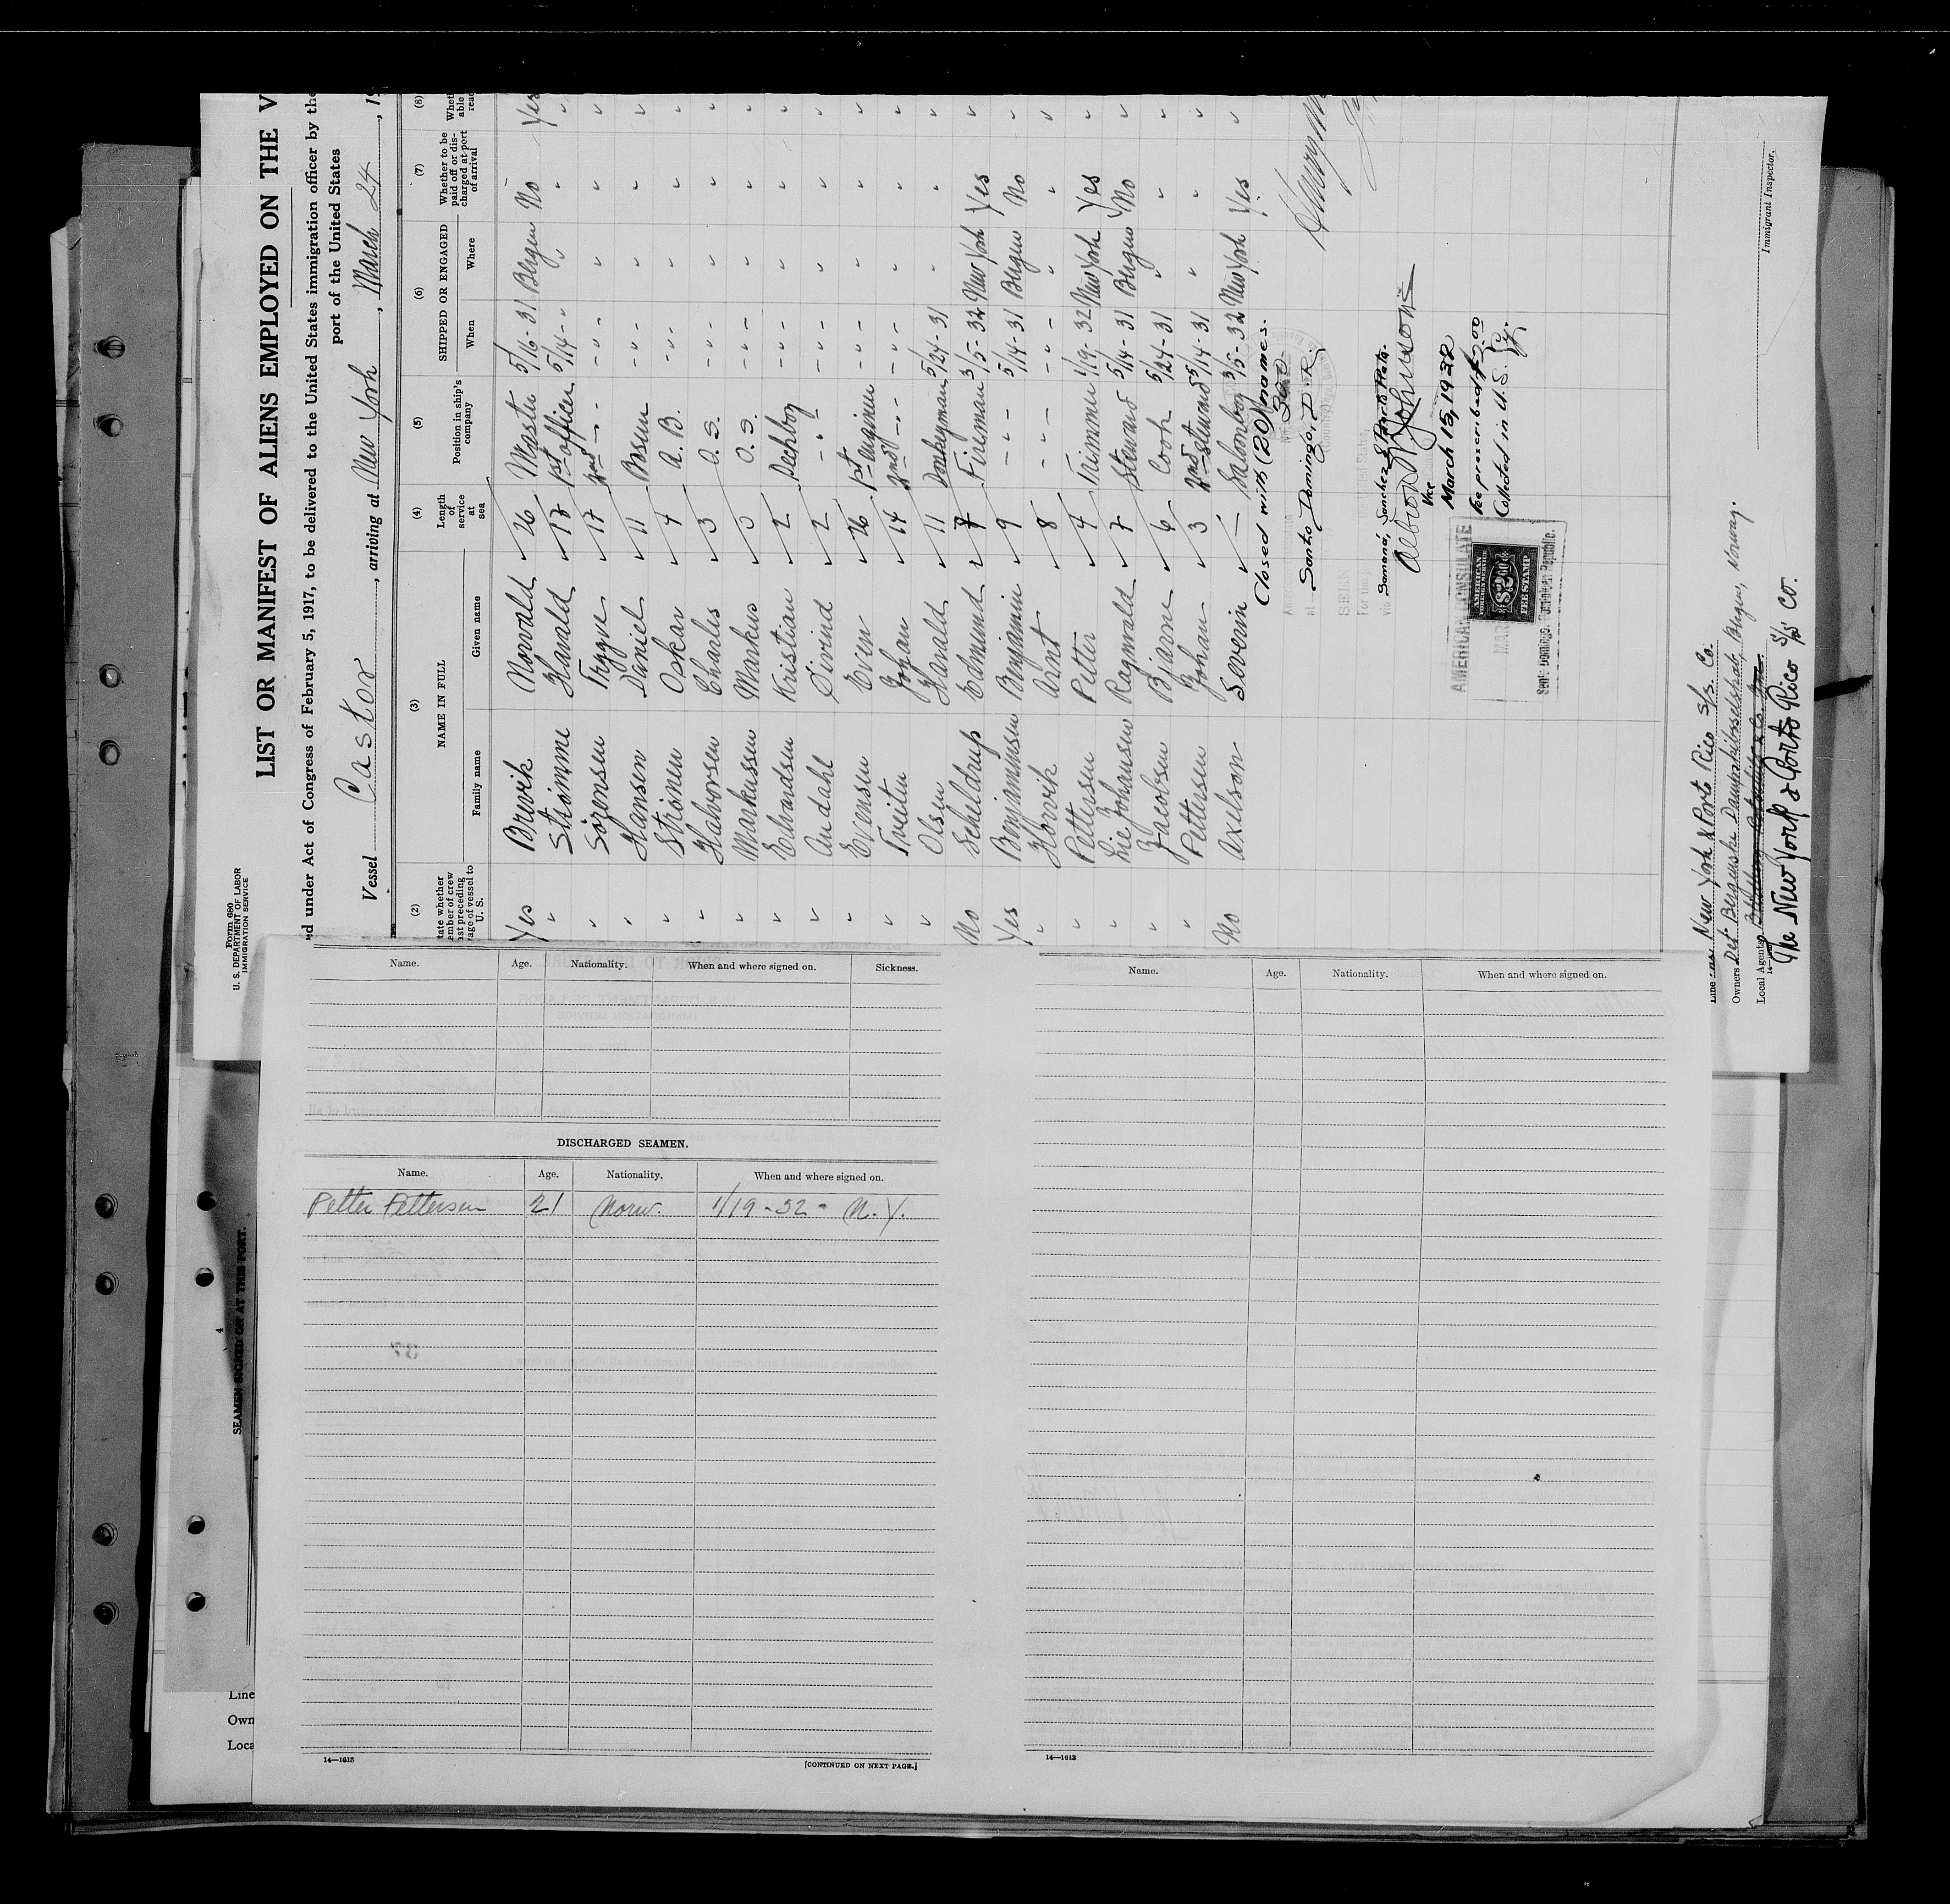 Form 680
U. S. DEPARTMENT OF LABOR
IMMIGRATION SERVICE
LIST OR MANIFEST OF ALIENS EMPLOYED ON THE V
ed under Act of Congress of February 5, 1917, to be delivered to the United States immigration officer by the
port of the United States
Vessel Castor, arriving at New York, March 24, 19
(2) (3) (4) (5) (6) (7) (8)
tate whether ember of crew ast preceding age of vessel to U. S.
NAME IN FULL
Family name Given name
Length of service at sea
Position in ship's company
SHIPPED OR ENGAGED
When Where
Whether to be paid off or discharged at port of arrival
Whet able read
Yes Brevik Norvald 26 Master 5/16-31 Bergen No Yes
" Strømme Harald 17 1st officer 5/14-" " " "
" Sörensen Trygve 17 2nd -"- -"- " " "
" Hansen Daniel 11 Bosun -"- " " "
" Strönen Oskar 4 A.B. -"- " " "
" Halvorsen Charles 3 O.S. -"- " " "
" Markussen Markus 3 O.S. -"- " " "
" Edvardsen Kristian 2 Deckboy -"- " " "
" Aadahl Sivind 2 -"- -"- " " "
" Evensen Even 26 1st Engineer -"- " " "
" Tveiten Johan 14 2nd -"- -"- " " "
" Olsen Harald 11 Donkeyman 5/24-31 " " "
No Schjeldrup Edmund 7 Fireman 3/5-32 New York Yes "
Yes Benjaminsen Benjamin 9 -"- 5/14-31 Bergen No "
" Hovik Arnt 8 -"- -"- " " "
" Pettersen Petter 4 Trimmer 1/19-32 New York Yes "
" Lie Johansen Ragnvald 7 Steward 5/14-31 Bergen No "
" Jacobsen Bjarne 6 Cook 5/24-31 " " "
" Pettersen Johan 3 2nd Steward 5/14-31 " " "
No Axelson Severin — Saloonboy 3/5-32 New York Yes "
Closed with (20) names.
Santo Domingo, D.R.
SEEN
For the
via Samana, Sanchez & Porto Plata.
Albion W. Johnson
Vice
March 15, 1932
Fee prescribed $2.00
Collected in U.S. Cy.
AMERICAN CONSULATE
MAR
Santo Domingo, Dominican Republic.
AMERICAN
FOREIGN SERVICE
$2
FEE STAMP
Immigrant Inspector.
Line New York & Porto Rico S/s. Co.
Owners Det Bergenske Dampskibsselskab, Bergen, Norway.
Local Agents
The New York & Porto Rico S/S Co.
Name. Age. Nationality. When and where signed on. Sickness.
DISCHARGED SEAMEN.
Name. Age. Nationality. When and where signed on.
Petter Pettersen 21 Norw. 1/19-32- N.Y.
14—1613
[CONTINUED ON NEXT PAGE.]
Name. Age. Nationality. When and where signed on.
14—1613
4
SEAMEN SIGNED ON AT THIS PORT.
Line
Own
Loca